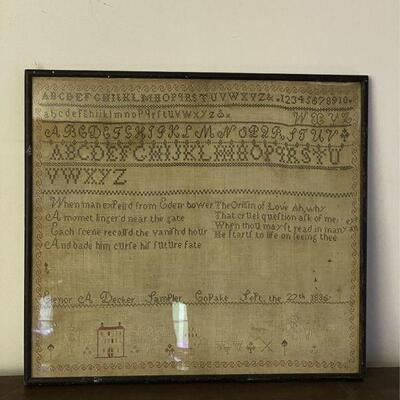 ABCDEFGHIJKLMNOPQRSTUVWXYZ& 12345678910
abcdefghijklmnopqrstuvwxyz& WXYZ
ABCDEFGHIJKLMNOPQRSTUV
ABCDEFGHIJKLMNOPQRSTU
VWXYZ
When man expell'd from Eden bower
A momet linger'd near the gate
Each scene recall'd the vanish'd hour
And bade him curse his future fate
The Origin of Love Ah, why
That cruel question ask of me
When thou may'st read in many an eye
He starts to life on seeing thee
Elenor A Decker Sampler Copake Sept. the 27th 1836